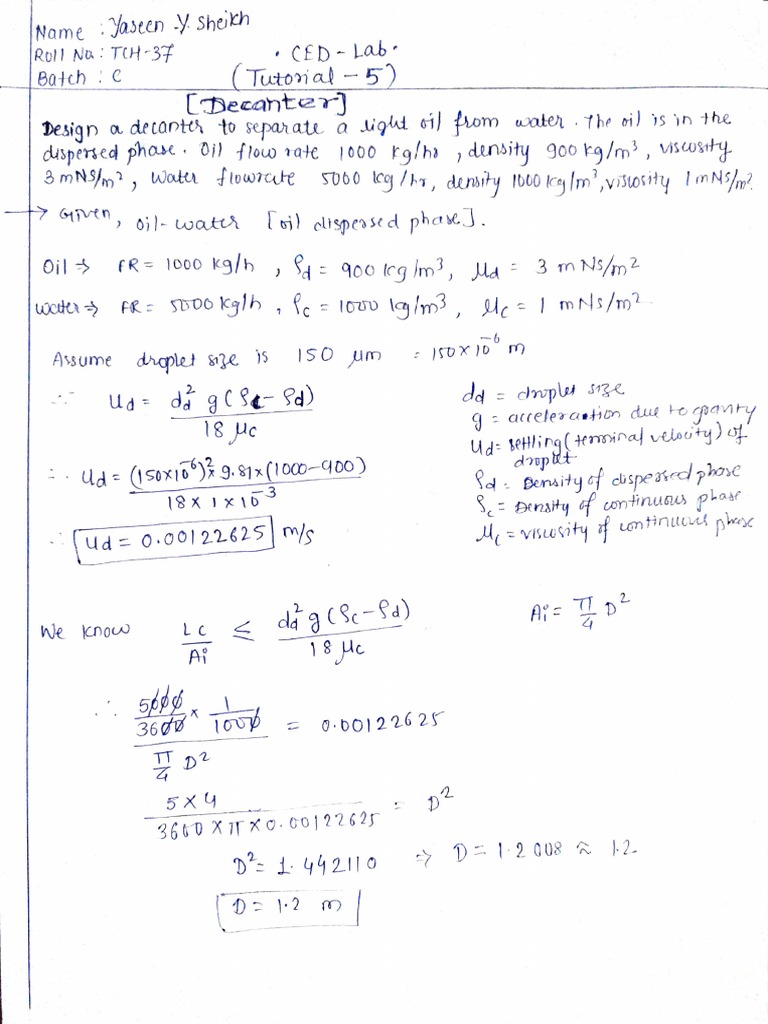 Name : Yaseen .Y. Sheikh
Roll No : TCH-37
Batch : C
• CED - Lab •
(Tutorial - 5)
[Decanter]
Design a decanter to separate a light oil from water. The oil is in the
dispersed phase. Oil flow rate 1000 kg/hr , density 900 kg/m³, viscosity
3 mNs/m², Water flowrate 5000 kg/hr, density 1000 kg/m³, viscosity 1 mNs/m².
→ Given, oil-water [oil dispersed phase].
Oil ⇒ FR = 1000 kg/h , ρd = 900 kg/m³, μd = 3 mNs/m²
water ⇒ FR = 5000 kg/h , ρc = 1000 kg/m³, μc = 1 mNs/m²
Assume droplet size is 150 μm = 150×10⁻⁶ m
∴ Ud = dd² g (ρc - ρd)
18 μc
∴ Ud = (150×10⁻⁶)² × 9.81 × (1000-900)
18 × 1 × 10⁻³
∴ Ud = 0.00122625 m/s
dd = droplet size
g = acceleraction due to gravity
Ud = settling (terminal velocity) of
droplet
ρd = Density of dispersed phase
ρc = Density of continuous phase
μc = viscosity of continuous phase
We know Lc/Ai ≤ dd² g (ρc - ρd)/18 μc
Ai = π/4 D²
∴ 5000/3600 × 1/1000 = 0.00122625
π/4 D²
5 × 4 = D²
3600 × π × 0.00122625
D² = 1.442110 ⇒ D = 1.2008 ≈ 1.2
D = 1.2 m